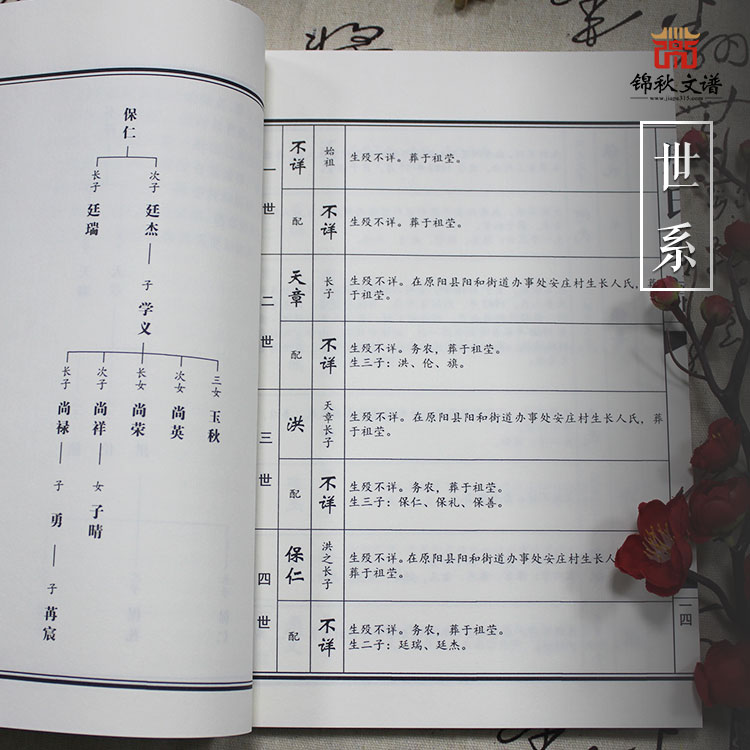 锦秋文谱
www.jiapu315.com
世系
保仁
长子 廷瑞
次子 廷杰
子 学义
长子 尚禄
次子 尚祥
长女 尚荣
次女 尚英
三女 玉秋
子 勇
女 子晴
子 苒宸
一世
不详 始祖 生殁不详。葬于祖茔。
配 不详 生殁不详。葬于祖茔。
二世
天章 长子 生殁不详。在原阳县阳和街道办事处安庄村生长人氏,葬
于祖茔。
配 不详 生殁不详。务农,葬于祖茔。
生三子:洪、伦、旗。
三世
洪 天章长子 生殁不详。在原阳县阳和街道办事处安庄村生长人氏,葬
于祖茔。
配 不详 生殁不详。务农,葬于祖茔。
生三子:保仁、保礼、保善。
四世
保仁 洪之长子 生殁不详。在原阳县阳和街道办事处安庄村生长人
葬于祖茔。
配 不详 生殁不详。务农,葬于祖茔。
生二子:廷瑞、廷杰。
一四